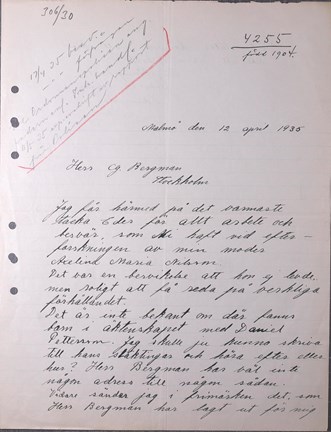 306/30
4255
född 1904.
17/4 35 besv.
Malmö den 12 april 1935
Herr Cg. Bergman
Stockholm
Jag får härmed på det varmaste
tacka Eder för allt arbete och
besvär, som Ni haft vid efter-
forskningen av min moder
Maria Nilsson
Det var en besvikelse att hon ej levde
men roligt att få reda på verkliga
förhållandet.
Det är inte bekant om där fanns
barn i äktenskapet med Daniel
Pettersson. Jag skulle ju kunna skriva
till hans släktingar och höra efter eller
hur? Herr Bergman har väl inte
någon adress till någon sådan.
Vidare sänder jag i frimärken det, som
Herr Bergman har lagt ut för mig